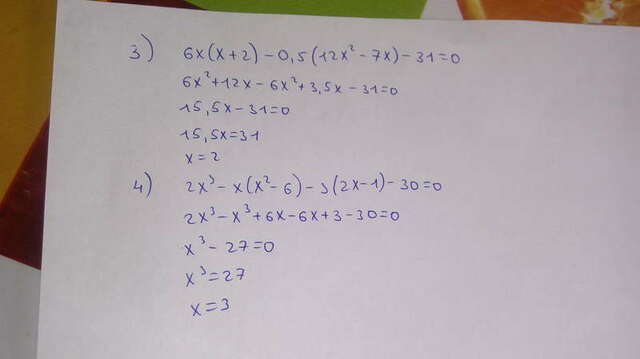 3) 6x(x+2)-0,5(12x²-7x)-31=0
6x²+12x-6x²+3,5x-31=0
15,5x-31=0
15,5x=31
x=2
4) 2x³-x(x²-6)-3(2x-1)-30=0
2x³-x³+6x-6x+3-30=0
x³-27=0
x³=27
x=3